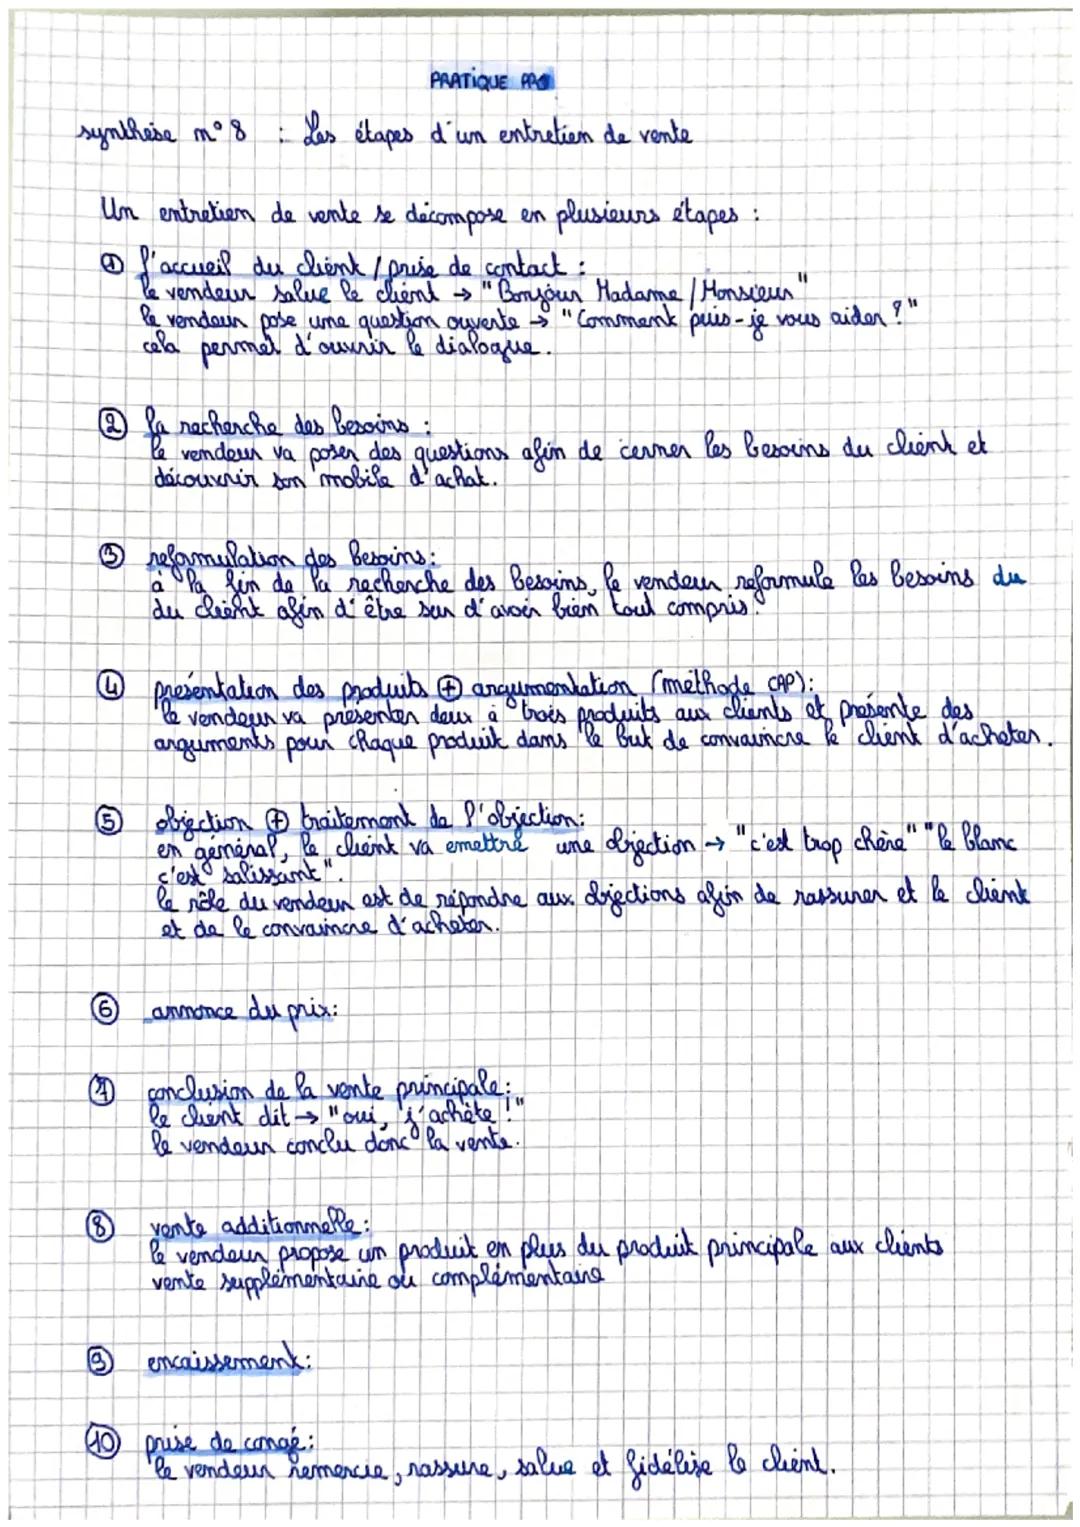 PRATIQUE PRO
synthèse n° 8 : Les étapes d'un entretien de vente
Un entretien de vente se décompose en plusieurs étapes :
① l'accueil du client / prise de contact :
le vendeur salue le client → "Bonjour Madame / Monsieur"
le vendeur pose une question ouverte → "Comment puis-je vous aider ?"
cela permet d'ouvrir le dialogue.
② la recherche des besoins :
le vendeur va poser des questions afin de cerner les besoins du client et
découvrir son mobile d'achat.
③ reformulation des besoins:
à la fin de la recherche des besoins, le vendeur reformule les besoins du
du client afin d'être sur d'avoir bien tout compris.
④ présentation des produits ⊕ argumentation (méthode CAP):
le vendeur va présenter deux à trois produits aux clients et présente des
arguments pour chaque produit dans le but de convaincre le client d'acheter.
⑤ objection ⊕ traitement de l'objection:
en général, le client va emettre une objection → "c'est trop chère" "le blanc
c'est salissant".
le rôle du vendeur est de répondre aux objections afin de rassurer et le client
et de le convaincre d'acheter.
⑥ annonce du prix:
⑦ conclusion de la vente principale:
le client dit → "oui, j'achète !"
le vendeur conclu donc la vente.
⑧ vente additionnelle:
le vendeur propose un produit en plus du produit principale aux clients
vente supplémentaire ou complémentaire
⑨ encaissement:
⑩ prise de congé:
le vendeur remercie, rassure, salue et fidélise le client.